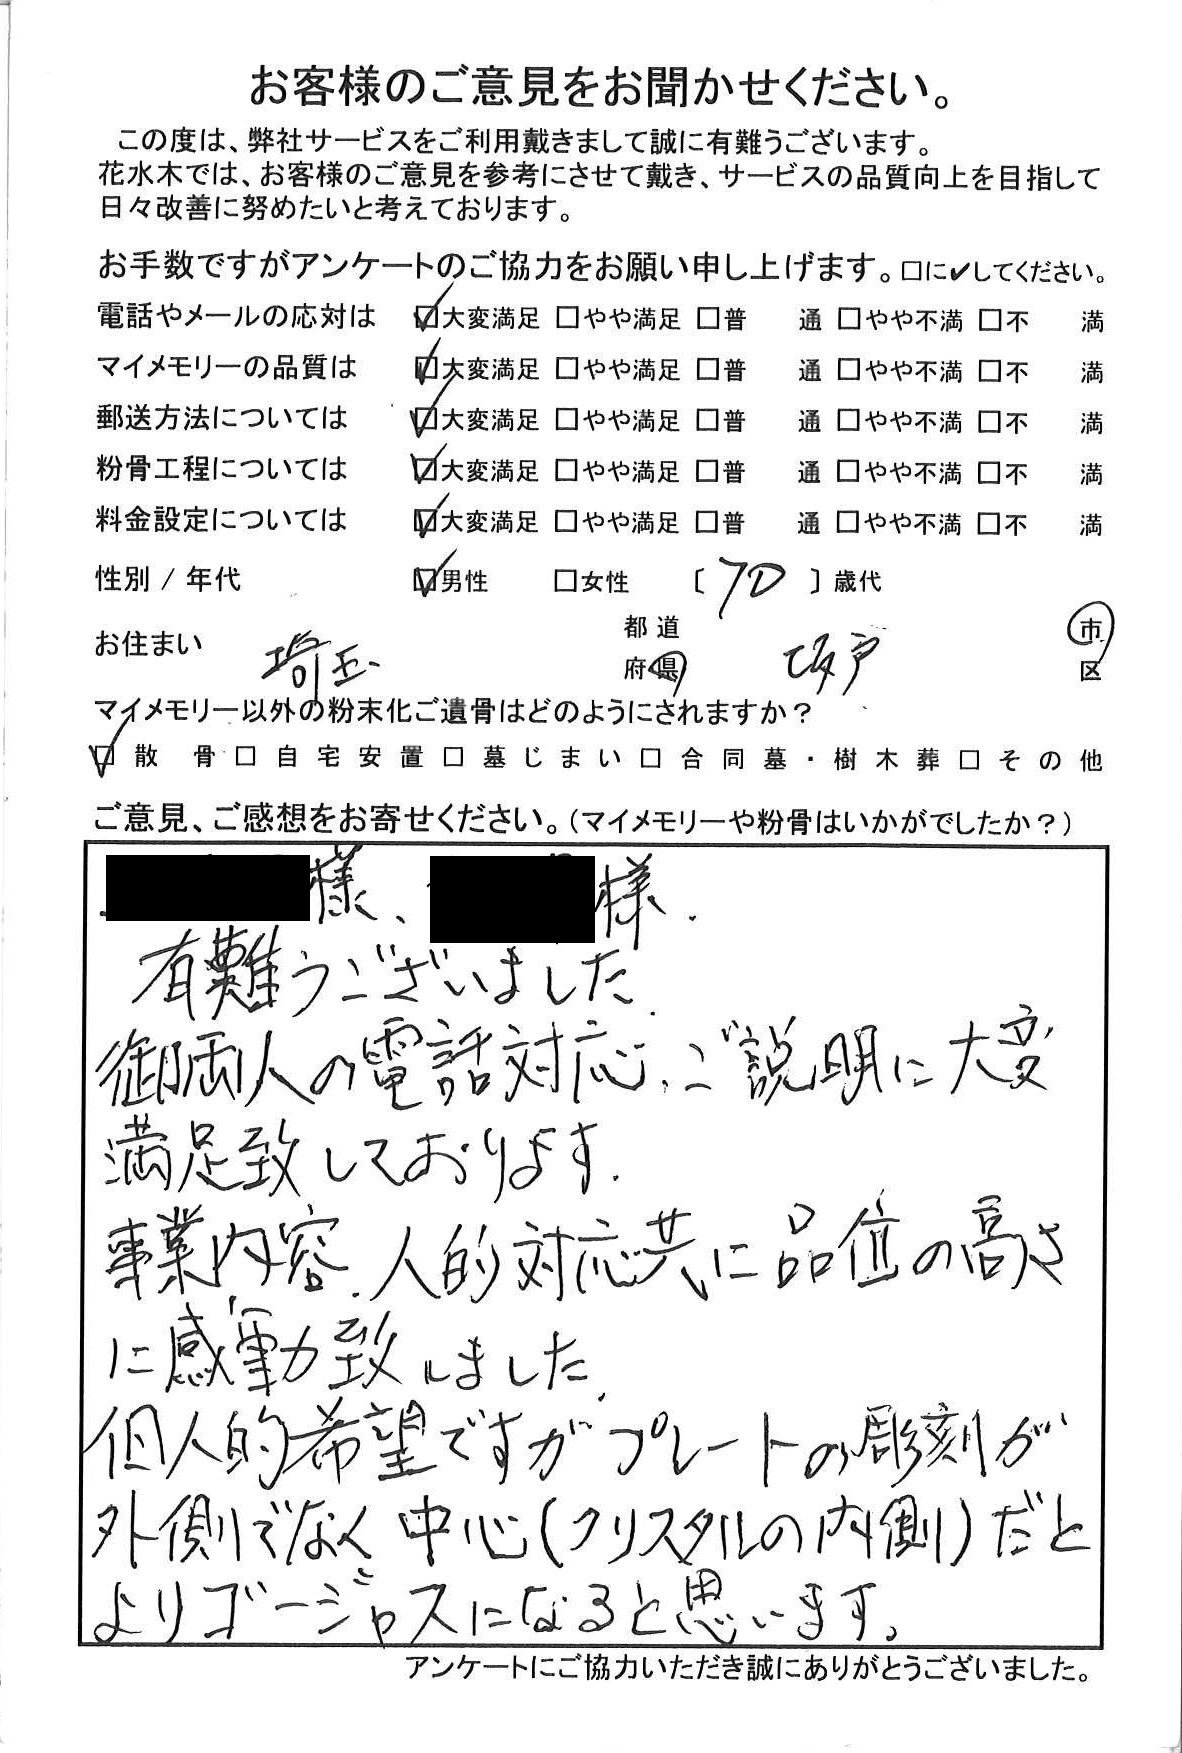 お客様のご意見をお聞かせください。
この度は、弊社サービスをご利用戴きまして誠に有難うございます。
花水木では、お客様のご意見を参考にさせて戴き、サービスの品質向上を目指して
日々改善に努めたいと考えております。
お手数ですがアンケートのご協力をお願い申し上げます。□に✓してください。
電話やメールの応対は ☑大変満足 □やや満足 □普 通 □やや不満 □不 満
マイメモリーの品質は ☑大変満足 □やや満足 □普 通 □やや不満 □不 満
郵送方法については ☑大変満足 □やや満足 □普 通 □やや不満 □不 満
粉骨工程については ☑大変満足 □やや満足 □普 通 □やや不満 □不 満
料金設定については ☑大変満足 □やや満足 □普 通 □やや不満 □不 満
性別 / 年代 ☑男性 □女性 〔 70 〕歳代
お住まい 埼玉 都道府県 坂戸 市区
マイメモリー以外の粉末化ご遺骨はどのようにされますか？
☑散 骨□自宅安置□墓じまい□合同墓・樹木葬□その他
ご意見、ご感想をお寄せください。（マイメモリーや粉骨はいかがでしたか？）
様、様.
有難うございました.
御両人の電話対応、ご説明に大変
満足致しております.
事業内容、人的対応共に品位の高さ
に感動致しました.
個人的希望ですがプレートの彫刻が
外側でなく中心(クリスタルの内側)だと
よりゴージャスになると思います。
アンケートにご協力いただき誠にありがとうございました。